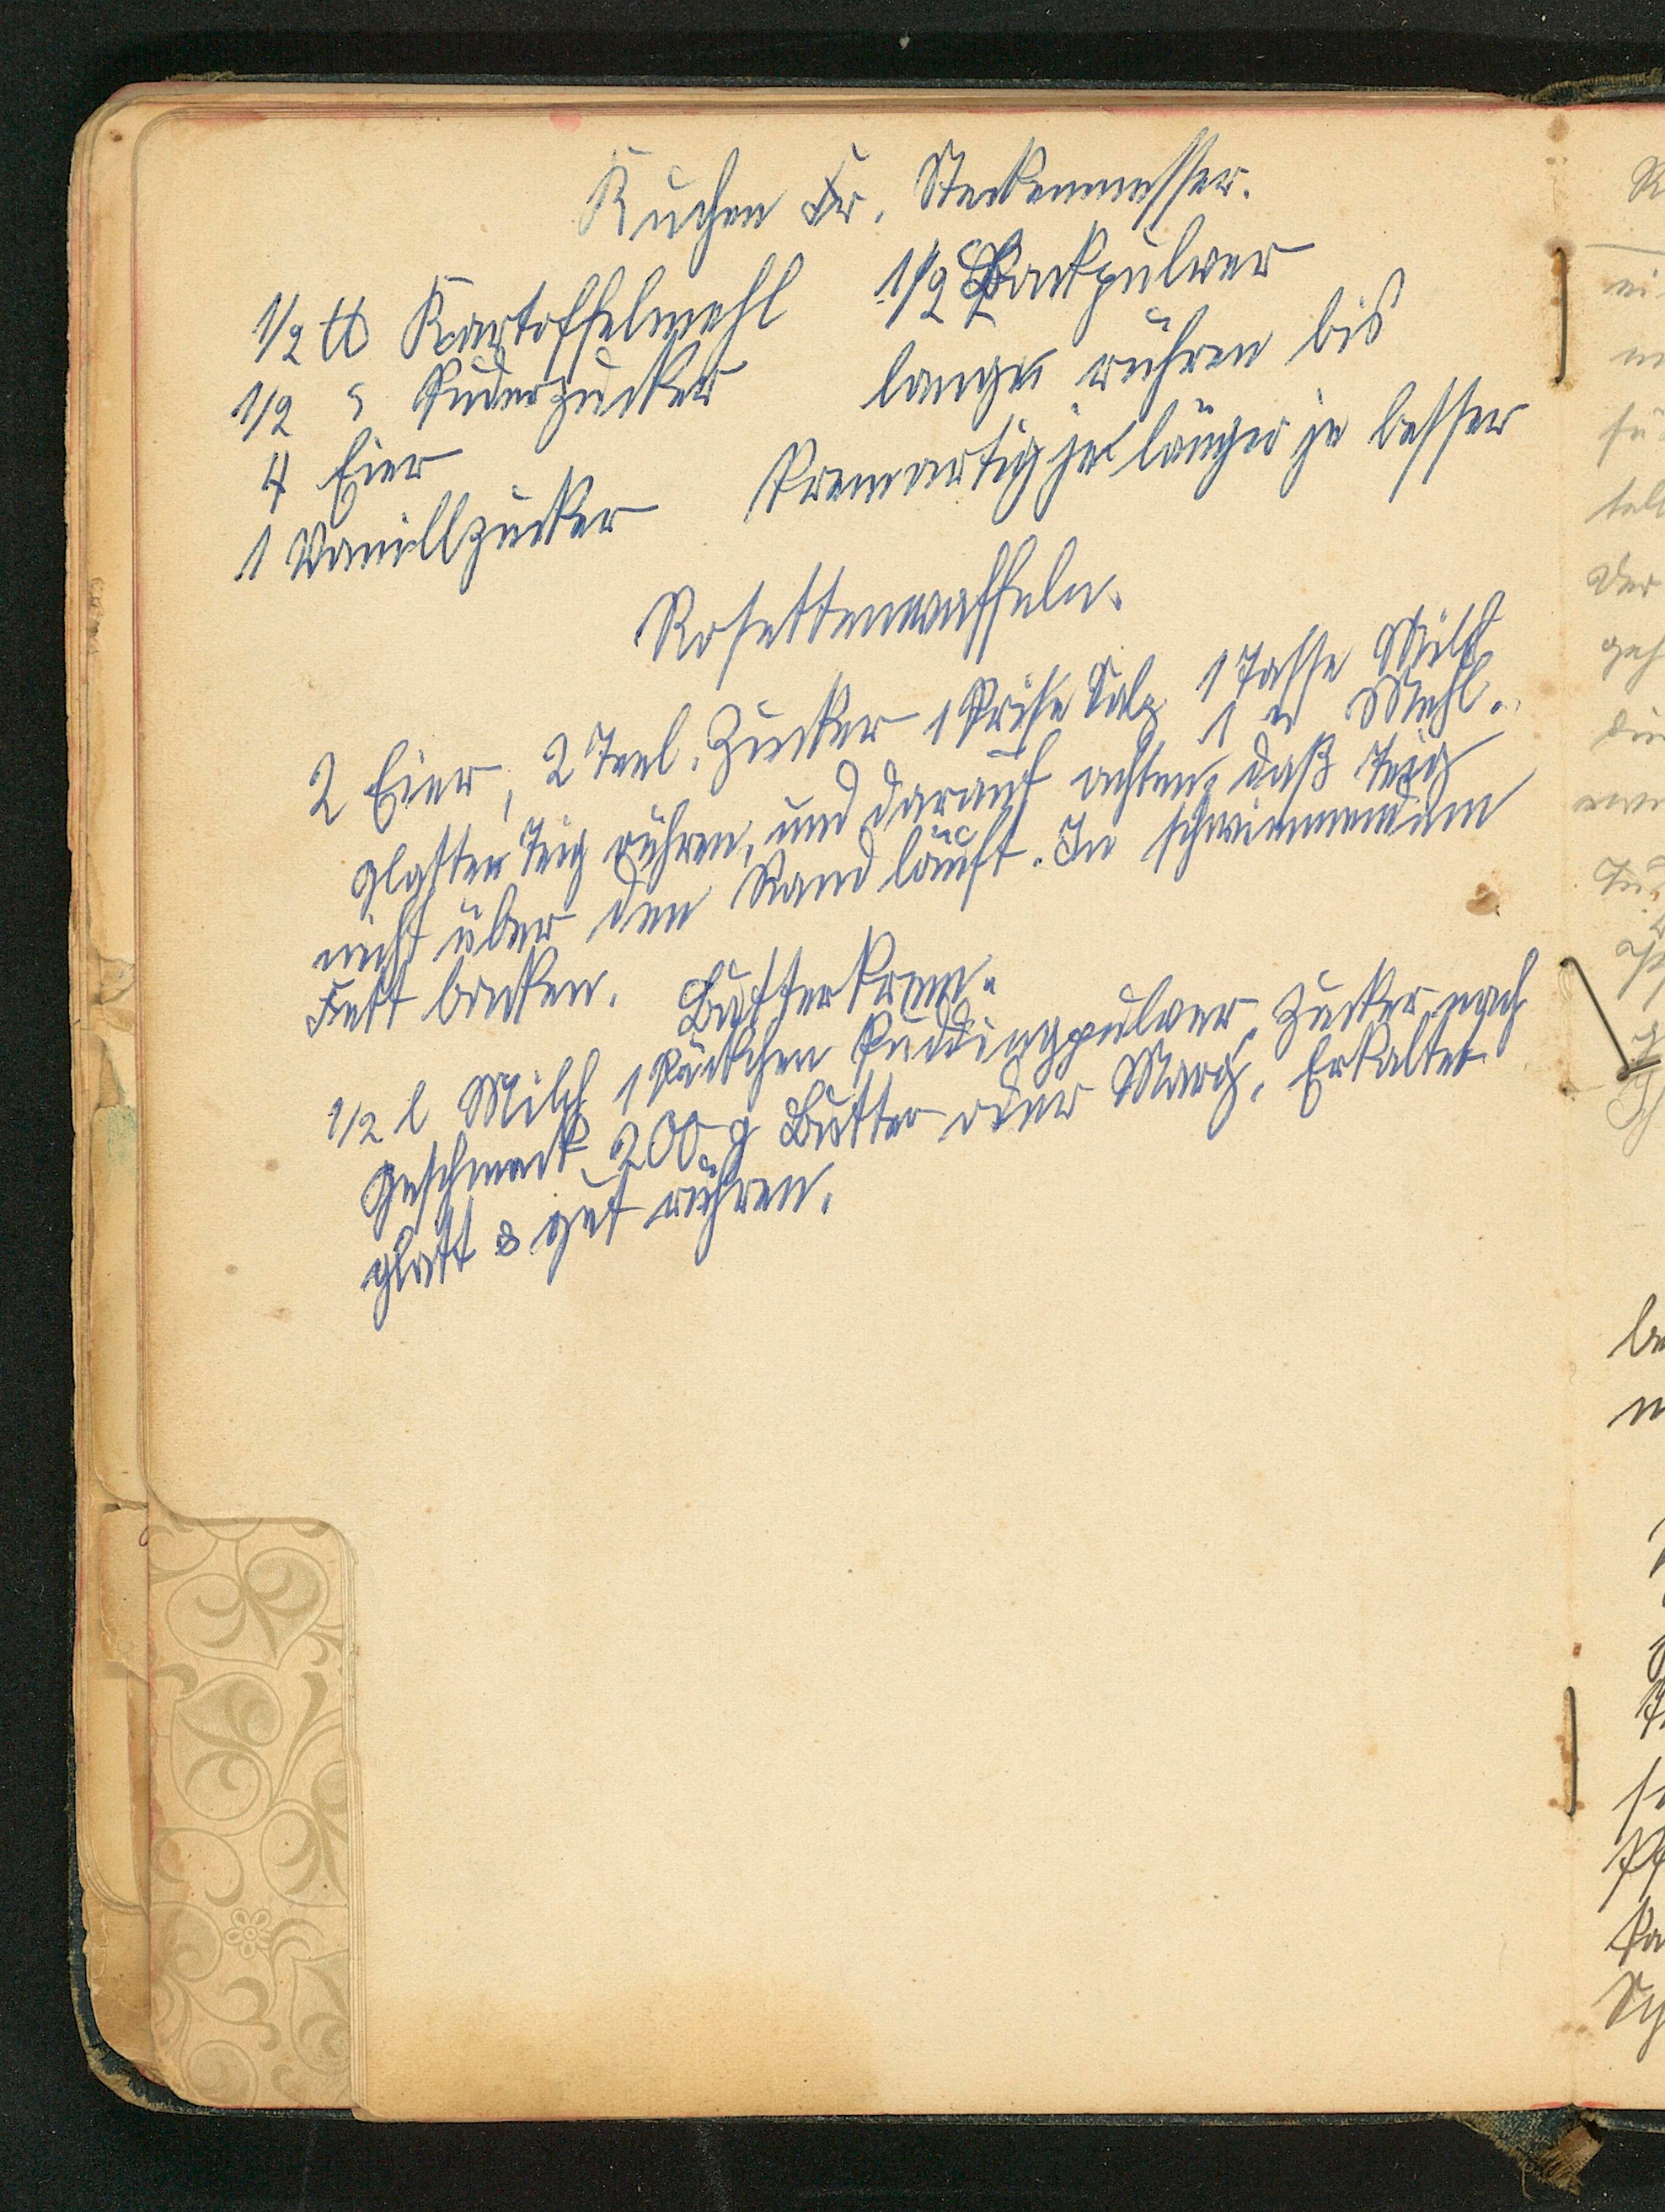 Kuchen Fr. Steckenmesser.
1/2 ℔ Kartoffelmehl 1/2 Backpulver
1/2 " Puderzucker lange rühren bis
4 Eier kremartig je länger je besser
1 Vanillzucker
Rosettenwaffeln.
2 Eier, 2 Teel. Zucker 1 Prise Salz 1 Tasse Milch
1 " Mehl.
glatten Teig rühren, und darauf achten, daß Teig
nicht über den Rand läuft. In schwimmendem
Fett backen.
Butterkrem.
1/2 l Milch 1 Päckchen Puddingpulver, Zucker nach
Geschmack 200 g Butter oder Marg. Erkaltet
glatt & gut rühren.